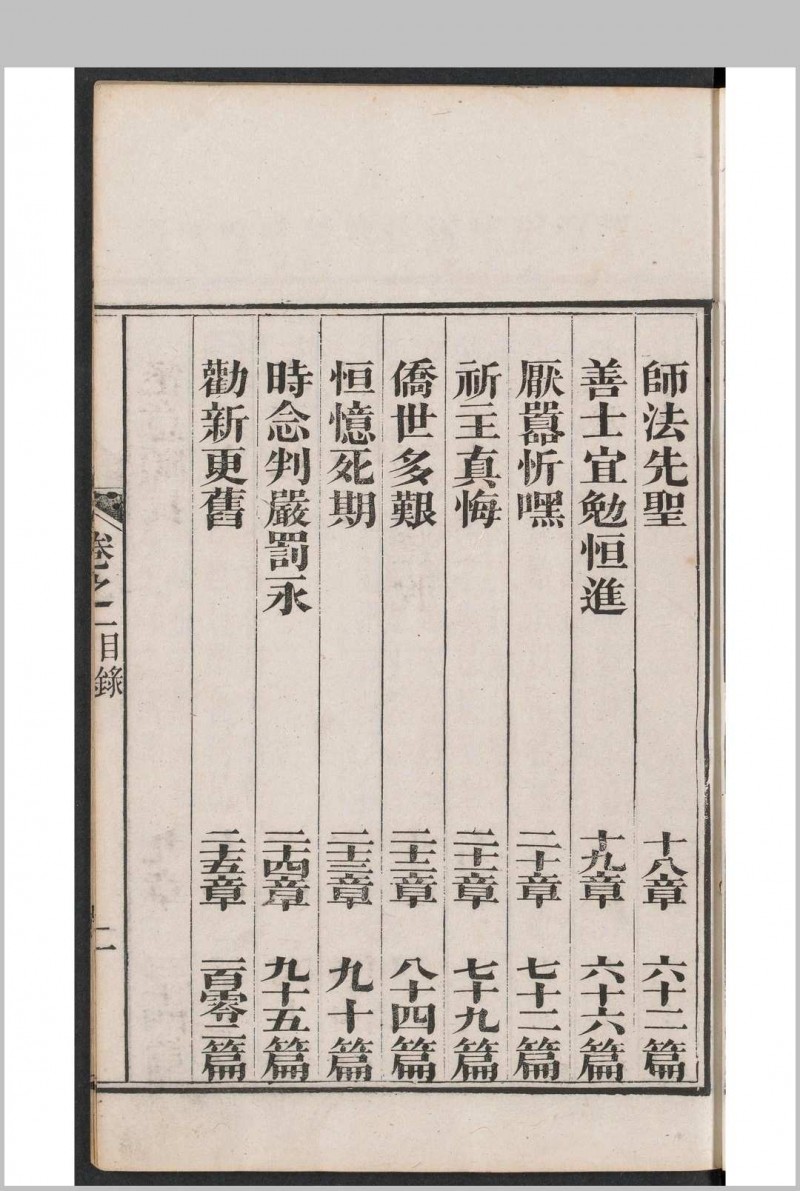 師法先聖 十八章 六十二篇
善士宜勉恒進 十九章 六十六篇
厭囂忻嘿 二十章 七十二篇
祈主真悔 二十一章 七十九篇
僑世多艱 二十二章 八十四篇
恒憶死期 二十三章 九十篇
時念判嚴罰永 二十四章 九十五篇
勸新更舊 二十五章 一百零二篇
卷之一目錄 二